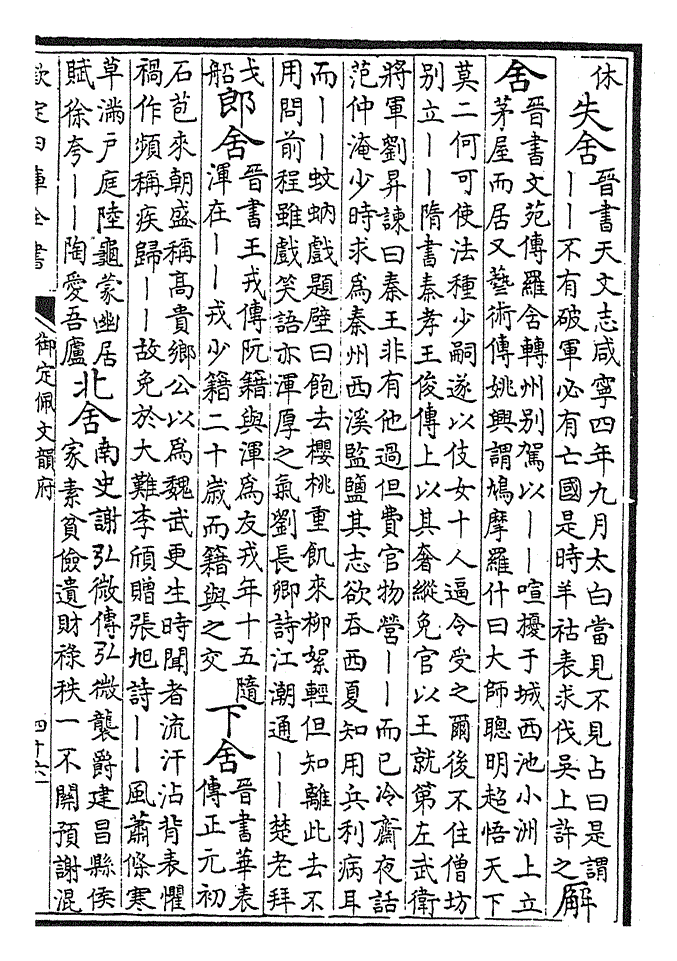 休
失舍
晉書天文志咸寧四年九月太白當見不見占曰是謂
——不有破軍必有亡國是時羊祜表求伐吳上許之
廨
舍
晉書文苑傳羅含轉州别駕以——喧擾于城西池小洲上立
茅屋而居又藝術傳姚興謂鳩摩羅什曰大師聰明超悟天下
莫二何可使法種少嗣遂以伎女十人逼令受之爾後不住僧坊
别立——隋書秦孝王俊傳上以其奢縱免官以王就第左武衛
將軍劉昇諫曰秦王非有他過但費官物營——而已冷齋夜話
范仲淹少時求爲秦州西溪監鹽其志欲吞西夏知用兵利病耳
而——蚊蚋戲題壁曰飽去櫻桃重飢來柳絮輕但知離此去不
用問前程雖戲笑語亦渾厚之氣劉長卿詩江潮通——楚老拜
戈
船
郎舍
晉書王戎傳阮籍與渾爲友戎年十五隨
渾在——戎少籍二十歲而籍與之交
下舍
晉書華表
傳正元初
石苞來朝盛稱高貴鄉公以爲魏武更生時聞者流汗沾背表懼
禍作頻稱疾歸——故免於大難李頎贈張旭詩——風蕭條寒
草滿户庭陸龜蒙幽居
賦徐夸——陶愛吾廬
北舍
南史謝弘微傳弘微襲爵建昌縣侯
家素貧儉遺財祿秩一不關預謝混
欽定四庫全書
御定佩文韻府
四十六